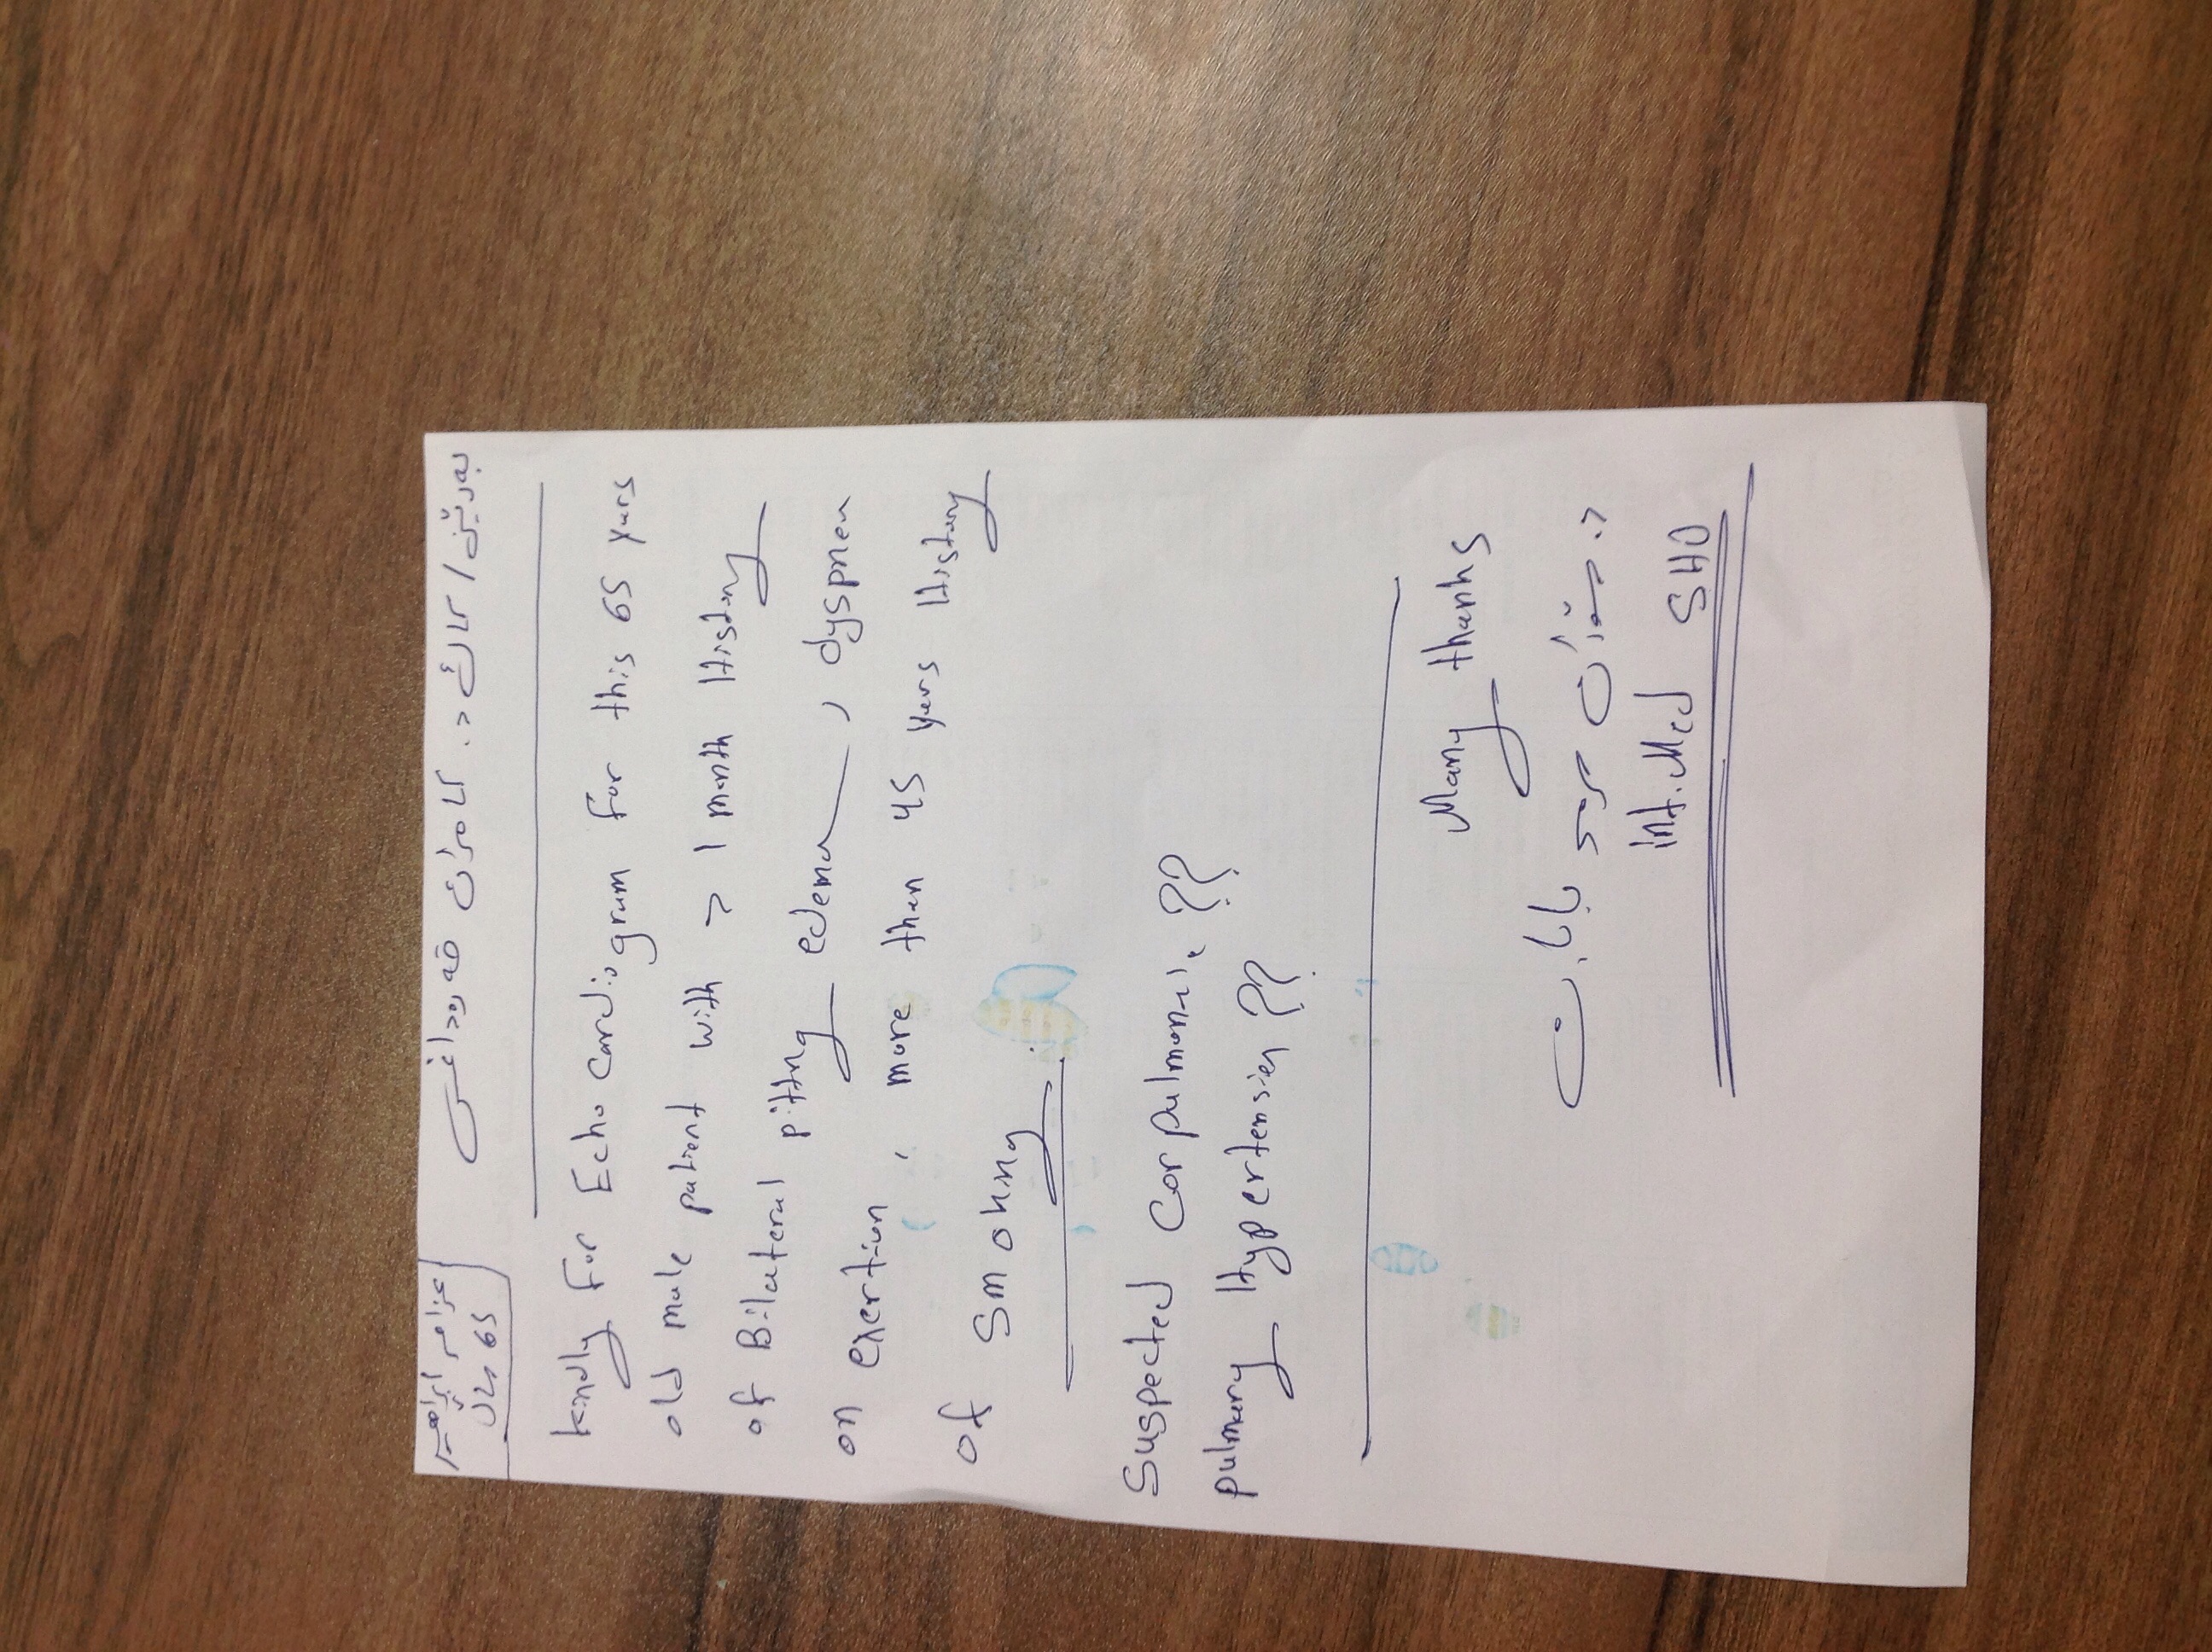 بەڕێز / کاک د. کامران قەرەداغی
ابراهیم
65 ساڵ
kindly For Echo cardiogram for this 65 years
old male patient with > 1 month History
of Bilateral pitting edema, dyspnea
on exertion, more than 45 years History
of Smoking.
Suspected Corpulmonale ??
pulmonary Hypertension ??
Many thanks
د. بابان
Int. Med SHO